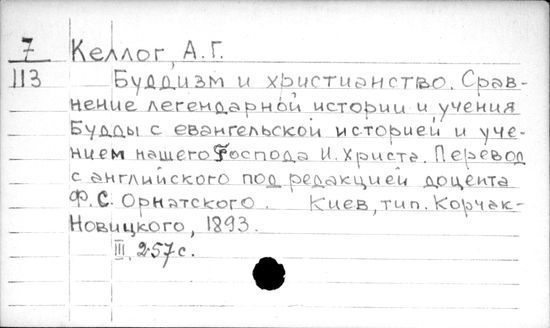 7 Келлог, А.Г.
113 Буддизм и христианство. Срав-
нение легендарной истории и учения
Будды с евангельской историей и уче-
нием нашего Господа И. Христа. Перевод
с английского под редакцией доцента
Ф.С. Орнатского. Киев, тип. Корчак-
Новицкого, 1893.
III, 257 с.